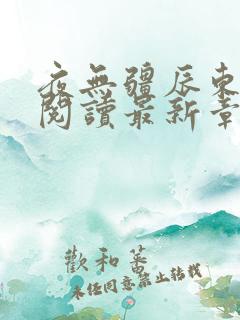 夜無疆辰東
閱讀最新章
歡和萬
未经同意禁止转载